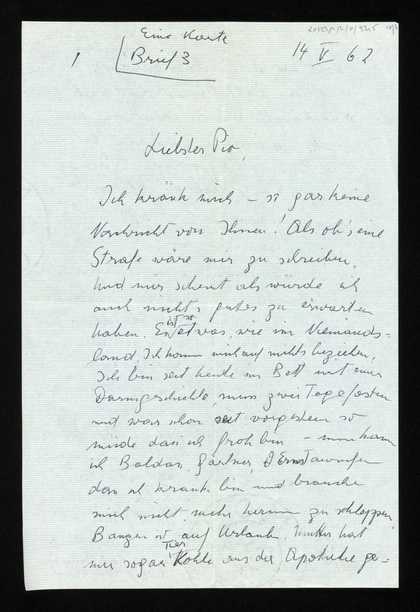 Eine Karte
Brief 3
14 V 62
1
Liebster Pio,
Ich kränk mich – so gar keine
Nachricht von Ihnen! Als ob's eine
Strafe wäre mir zu schreiben,
Und mir scheint als würde ich
auch nichts gutes zu erwarten
haben. Es ist so etwas, wie im Niemands-
land. Ich kann mich auf nichts beziehen.
Ich bin seit heute im Bett mit einer
Darmgeschichte muss zwei Tage fasten
und war schon seit vorgestern so
müde dass ich froh bin – nun kann
ich Baldass, Gärtner, anrufen
dass ich krank bin und brauche
mich nicht mehr herum zu schleppen
Banger ist auf Urlaub. hat
mir sogar Tierkohle aus der Apotheke ge-